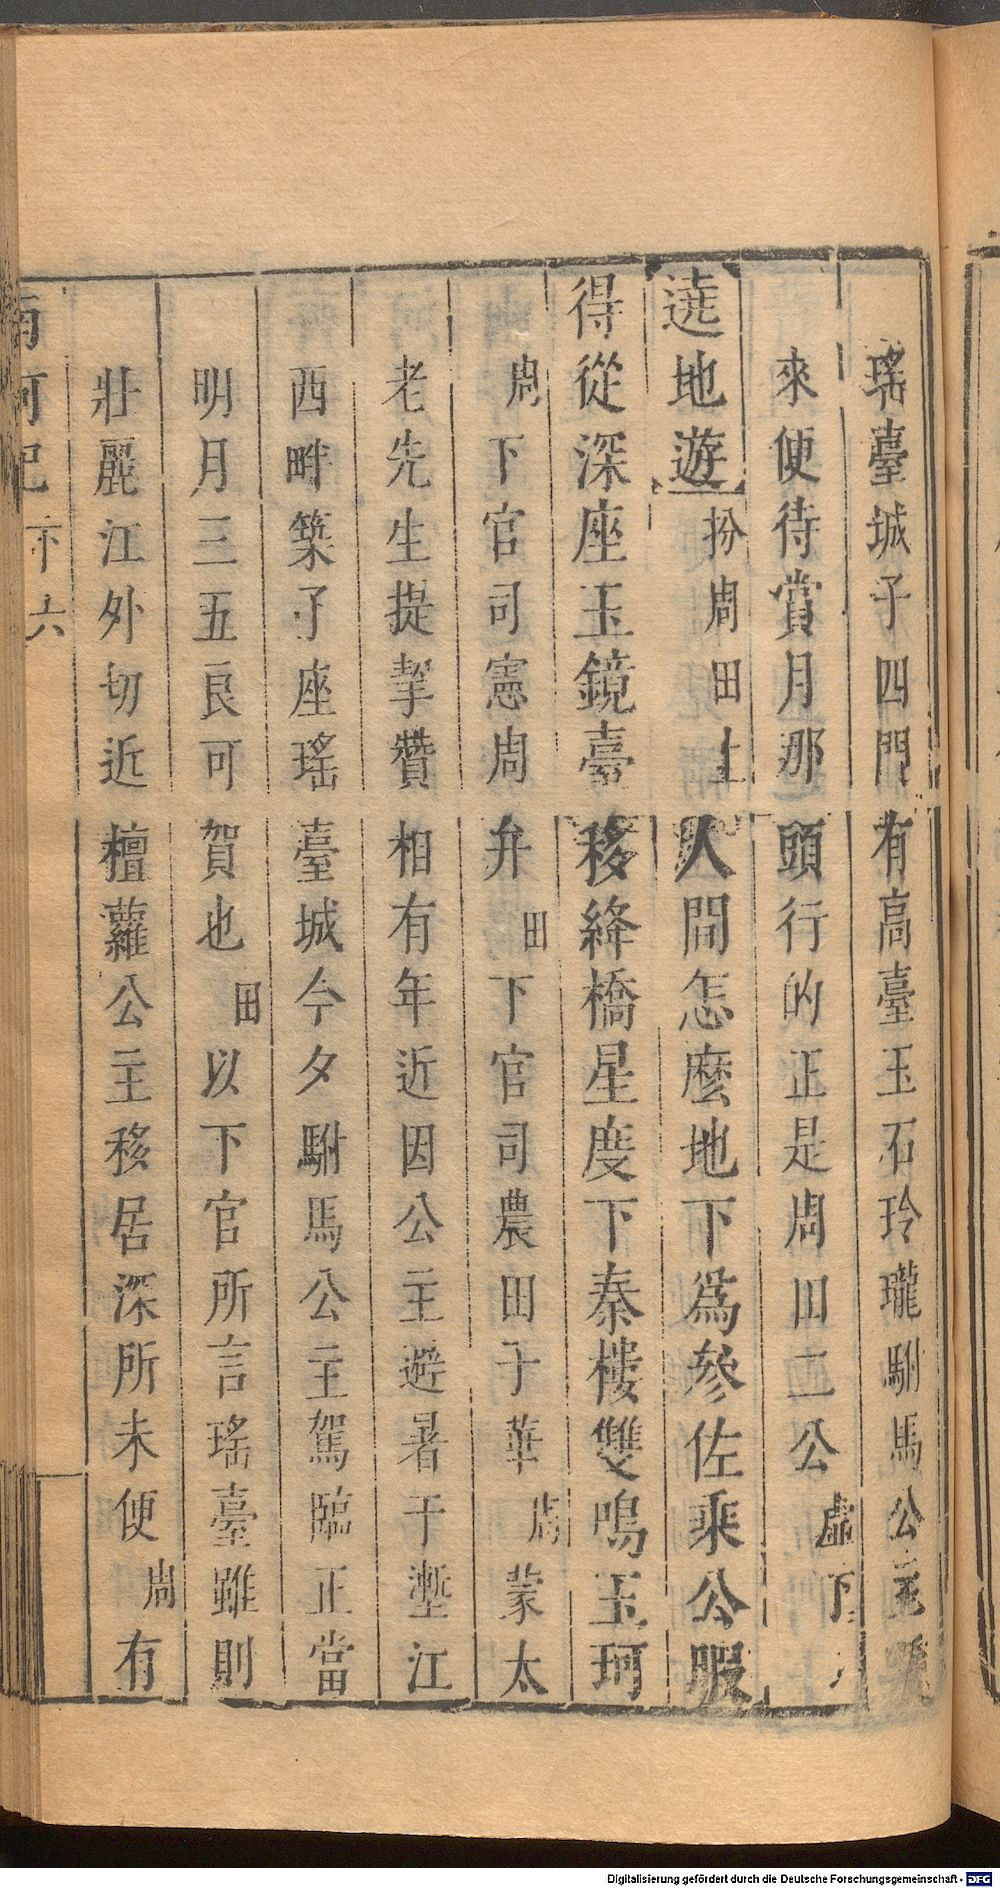 瑤臺城子四門有高臺玉石玲瓏駙馬公主
來便待賞月那頭行的正是周田二公虛下
遶地遊扮周田上人間怎麼地下爲參佐乘公暇
得從深座玉鏡臺移絳橋星度下秦樓雙鳴玉珂
周下官司憲周弁田下官司農田子華周蒙太
老先生提挈贊相有年近因公主避暑于壍江
西畔築了座瑤臺城今夕駙馬公主駕臨正當
明月三五良可賀也田以下官所言瑤臺雖則
壯麗江外切近檀蘿公主移居深所未便周有
南柯記 卞 六
Digitalisierung gefördert durch die Deutsche Forschungsgemeinschaft - DFG